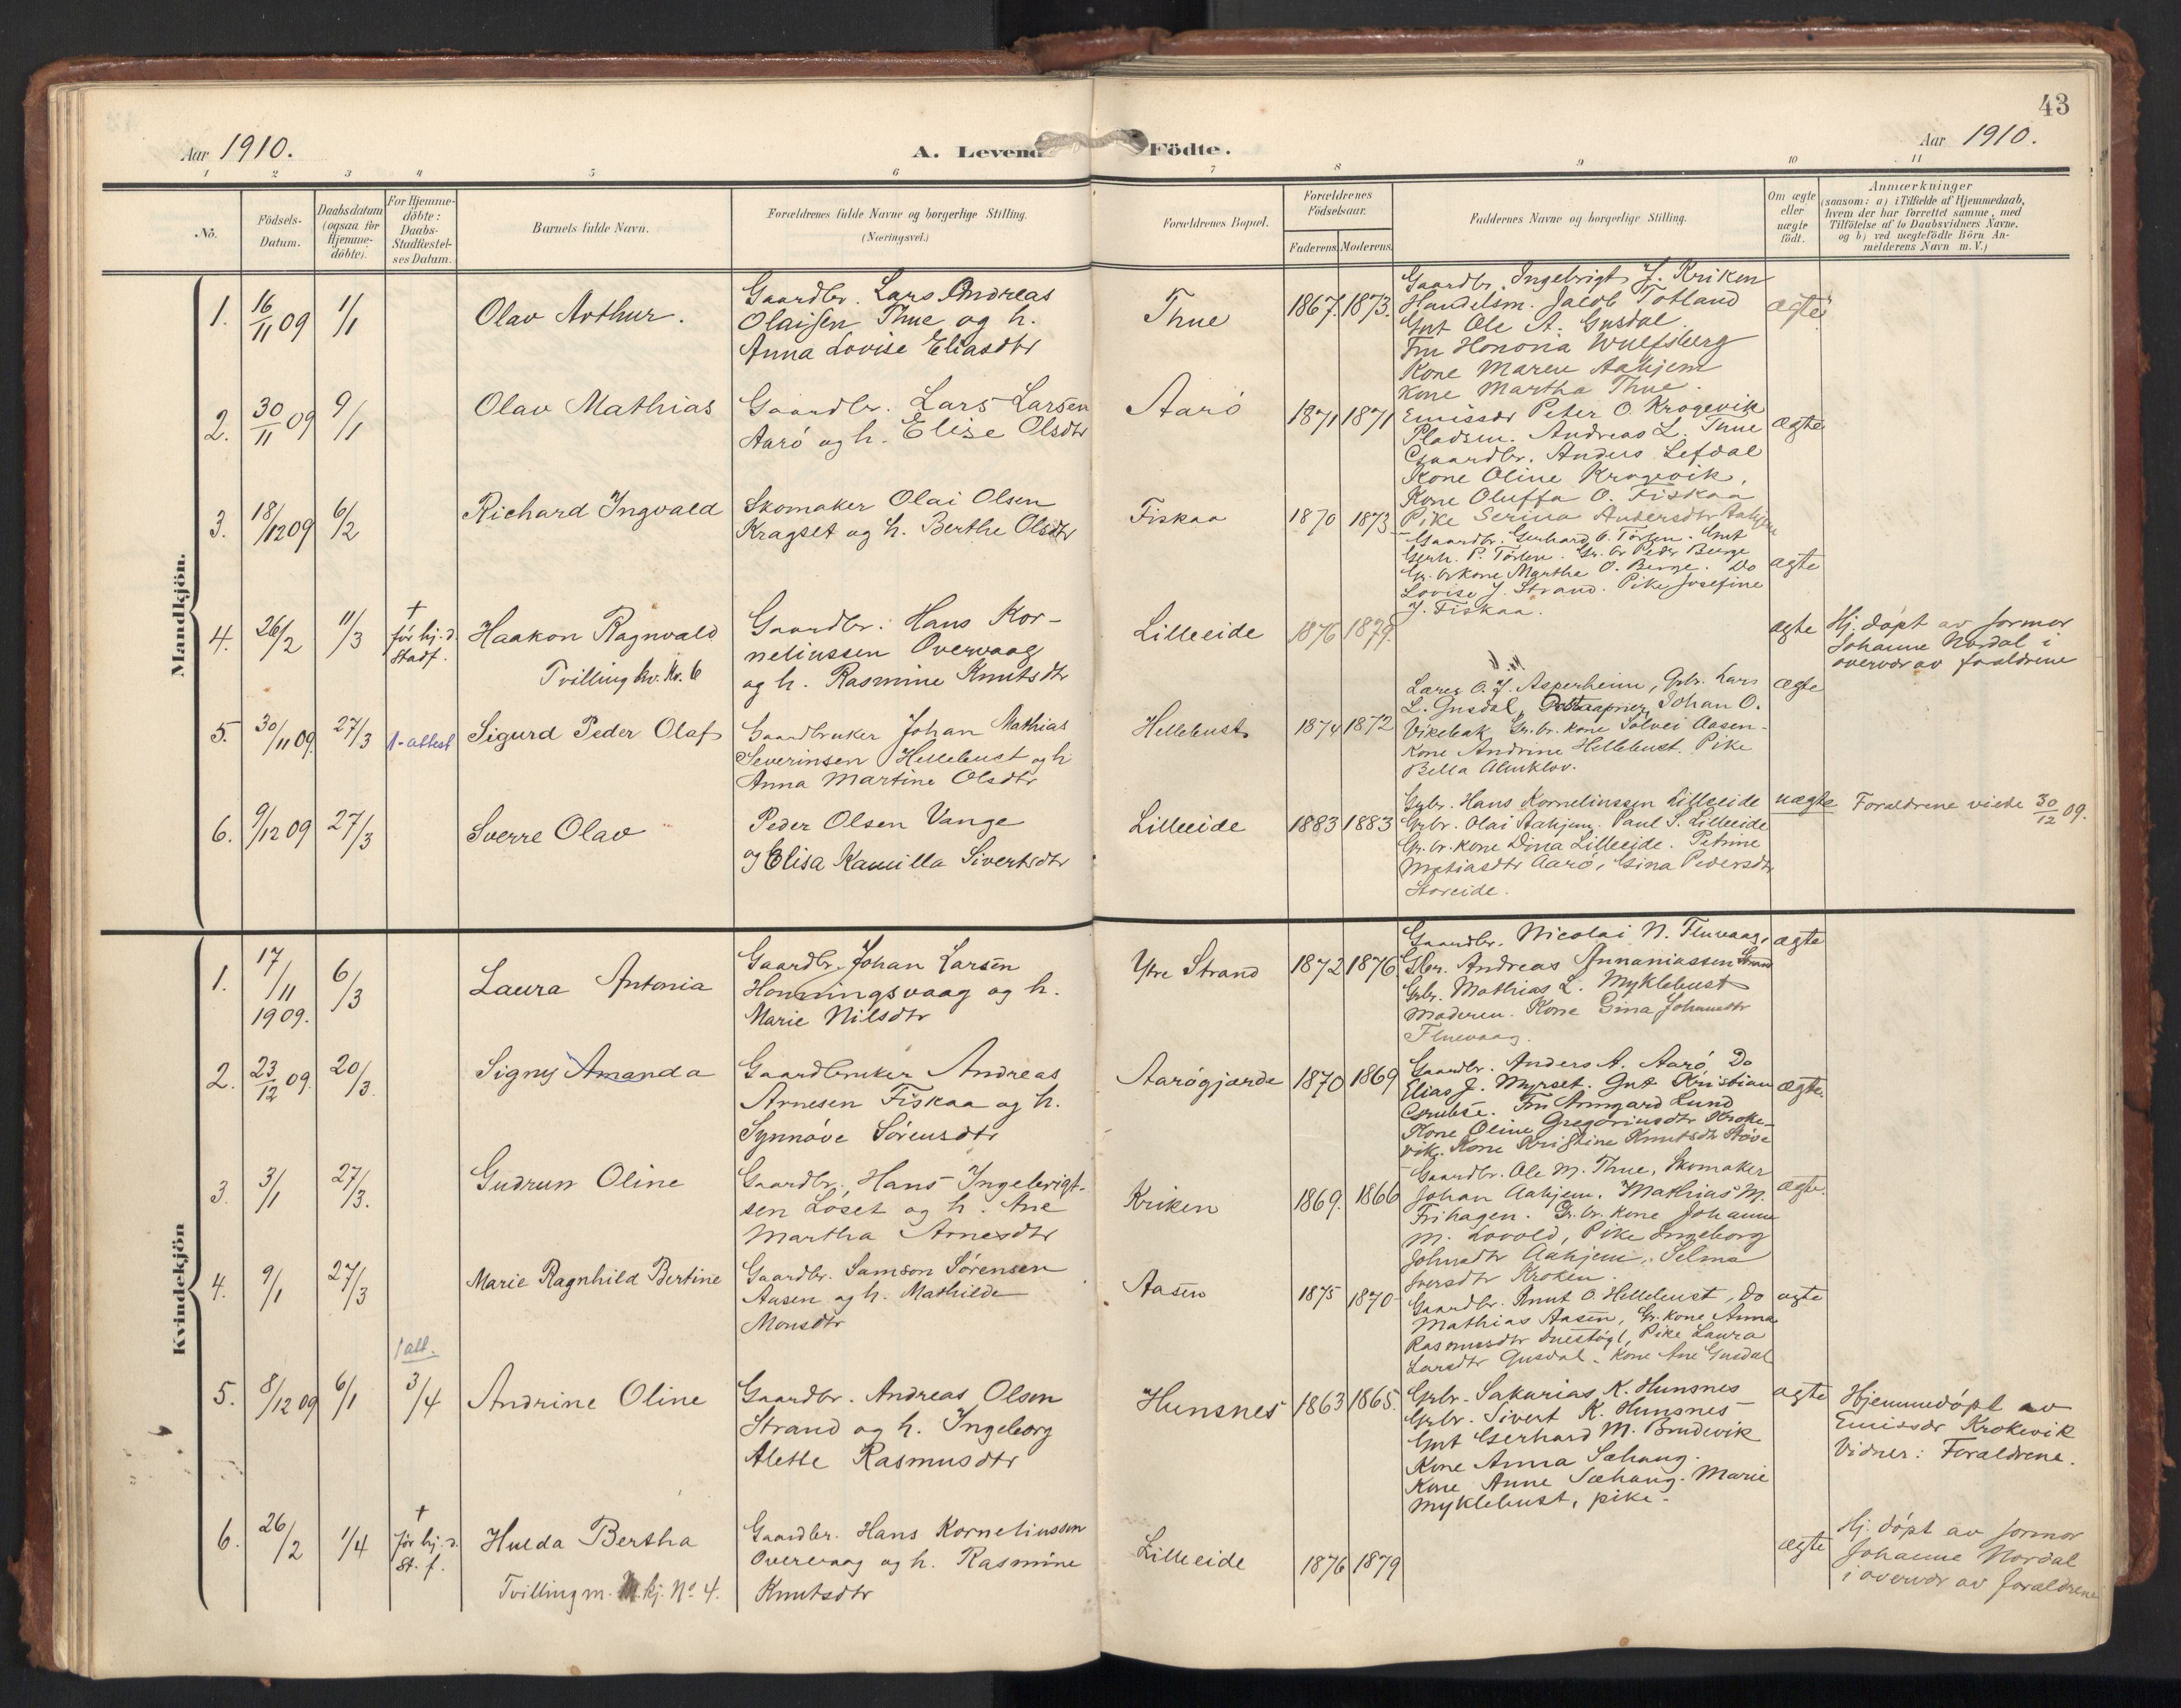 43
Aar 1910.
A. Levende Födte.
Aar 1910.
1 2 3 4 5 6 7 8 9 10 11
No.
Födsels-
Datum.
Daabsdatum
(ogsaa for
Hjemme-
döbte).
For Hjemme-
döbte:
Daabs-
Stadfæstel-
ses Datum.
Barnets fulde Navn.
Forældrenes fulde Navne og borgerlige Stilling.
(Næringsvei.)
Forældrenes Bopæl.
Forældrenes
Födselsaar.
Faderens. Moderens.
Faddernes Navne og borgerlige Stilling.
Om ægte
eller
uægte
födt.
Anmærkninger
(saasom: a) i Tilfælde af Hjemmedaab,
hvem der har forrettet samme, med
Tilföielse af to Daabsvidners Navne,
og b) ved uægtefödte Börn An-
melderens Navn m. V.)
Mandkjön.
1. 16/11 09 1/1
Olav Arthur.
Gaardbr. Lars Andreas
Olaisen Thue og h.
Anna Lovise Eliasdtr
Thue
1867. 1873.
Gaardbr. Ingebrigt J. Kriken
Handelsm. Jacob Totland
Gut Ole A. Gusdal
Fru Honoria Wulfsberg
Kone Maren Aahjem
Kone Martha Thue.
ægte
2. 30/11 09 9/1
Olav Mathias
Gaardbr. Lars Larsen
Aarö og h. Elise Olsdtr
Aarö
1871 1871
Emissær Peter O. Krogevik
Pladsm. Andreas L. Thue
Gaardbr. Anders Lefdal
Kone Oline Krogevik,
Kone Oluffa O. Fiskaa
Pike Serina Andersdtr Aahjem
ægte
3. 18/12 09 6/2
Richard Ingvald
Skomaker Olai Olsen
Kragset og h. Berthe Olsdtr
Fiskaa
1870 1873
Gaardbr. Gerhard O. Törlen. Gut
Gerh. P. Törlen. Gr. br Peder Berge
Gr. br kone Martha O. Berge. Do
Lovise J. Strand. Pike Josefine
J. Fiskaa.
ægte
4. 26/2 11/3
†
för hj. d.
Stadf.
Haakon Ragnvald
Tvilling kv. Nr. 6
Gaardbr. Hans Kor-
neliussen Overvaag
og h. Rasmine Knutsdtr
Lilleeide
1876 1879.
ægte
Hj. döpt av formor
Johanne Nordal i
overvær av forældrene
5. 30/11 09. 27/3
1-attest
Sigurd Peder Olaf
Gaardbruker Johan Mathias
Severinsen Hellebust og h
Anna Martine Olsdtr
Hellebust
1874 1872
Lærer O. J. Asperheim, Grbr. Lars
L. Gusdal, Postaapner, Johan O.
Vikebak, Gr. br. kone Solvei Aasen
Kone Andrine Hellebust. Pike
Bella Almklov.
ægte
6. 9/12 09 27/3
Sverre Olav
Peder Olsen Vange
og Elisa Kamilla Sivertsdtr
Lilleeide
1883 1883
Grbr. Hans Korneliussen Lilleeide
Grbr. Olai Aahjem. Paul S. Lilleeide
Gr. br. kone Dina Lilleeide. Petrine
Matiasdtr Aarö, Gina Pedersdtr
Storeide.
uægte
Forældrene viede 30/12 09.
Kvindekjön
1. 17/11 1909. 6/3
Laura Antonia
Gaardbr. Johan Larsen
Honningsvaag og h.
Marie Nilsdtr
Ytre Strand
1872 1876
Gaardbr. Nicolai N. Fluevaag,
Gbr. Andreas Annaniassen Strand
Grbr. Mathias L. Myklebust
Moderen. Kone Gina Johannsdtr
Fluevaag.
ægte
2. 23/12 09. 20/3
Signy Amanda
Gaardbruker Andreas
Arnesen Fiskaa og h.
Synnöve Sörensdtr
Aarögjærde
1870 1869
Gaardbr. Anders A. Aarö, Do
Elias J. Myrset. Gut Kristian
Grubse. Fru Armgard Lund
Kone Oline Gregoriusdtr Kroke-
vik. Kone Kristine Knutsdtr Stöve
ægte.
3. 3/1 27/3.
Gudrun Oline
Gaardbr. Hans Ingebrigt-
sen Löset og h. Ane
Martha Arnesdtr
Kriken
1869. 1866
Gaardbr. Ole M. Thue, Skomaker
Johan Aahjem. Mathias M.
Frihagen. Gr. br. kone Johanne
M. Lovold, Pike Ingeborg
Johnsdtr Aahjem, Selma
Iversdtr Kroken.
ægte.
4. 9/1 27/3
Marie Ragnhild Bertine
Gaardbr. Samson Sörensen
Aasen og h. Mathilde
Monsdtr
Aasen
1875 1870
Gaardbr. Knut O. Hellebust, Do
Mathias Aasen, Gr. kone Anna
Rasmusdtr Duestöyl, Pike Laura
Larsdtr Gusdal. Kone Ane Gusdal
ægte
5. 8/12 09 6/1
1 att.
3/4
Andrine Oline
Gaardbr. Andreas Olsen
Strand og h. Ingeborg
Alette Rasmusdtr
Hunsnes
1863 1865.
Grbr. Sakarias K. Hunsnes
Grbr. Sivert K. Hunsnes
Gut Gerhard M. Brudevik
Kone Anna Sæhaug.
Kone Anne Sæhaug. Marie
Myklebust, pike.
ægte
Hjemmedöpt av
Emissær Krokevik
Vidner: Forældrene.
6. 26/2 1/4
†
för hj. d.
St. f.
Hulda Bertha
Tvilling m. M.kj. No 4.
Gaardbr. Hans Korneliussen
Overvaag og h. Rasmine
Knutsdtr
Lilleeide
1876 1879
ægte
Hj. döpt av formor
Johanne Nordal
i overvær av forældrene